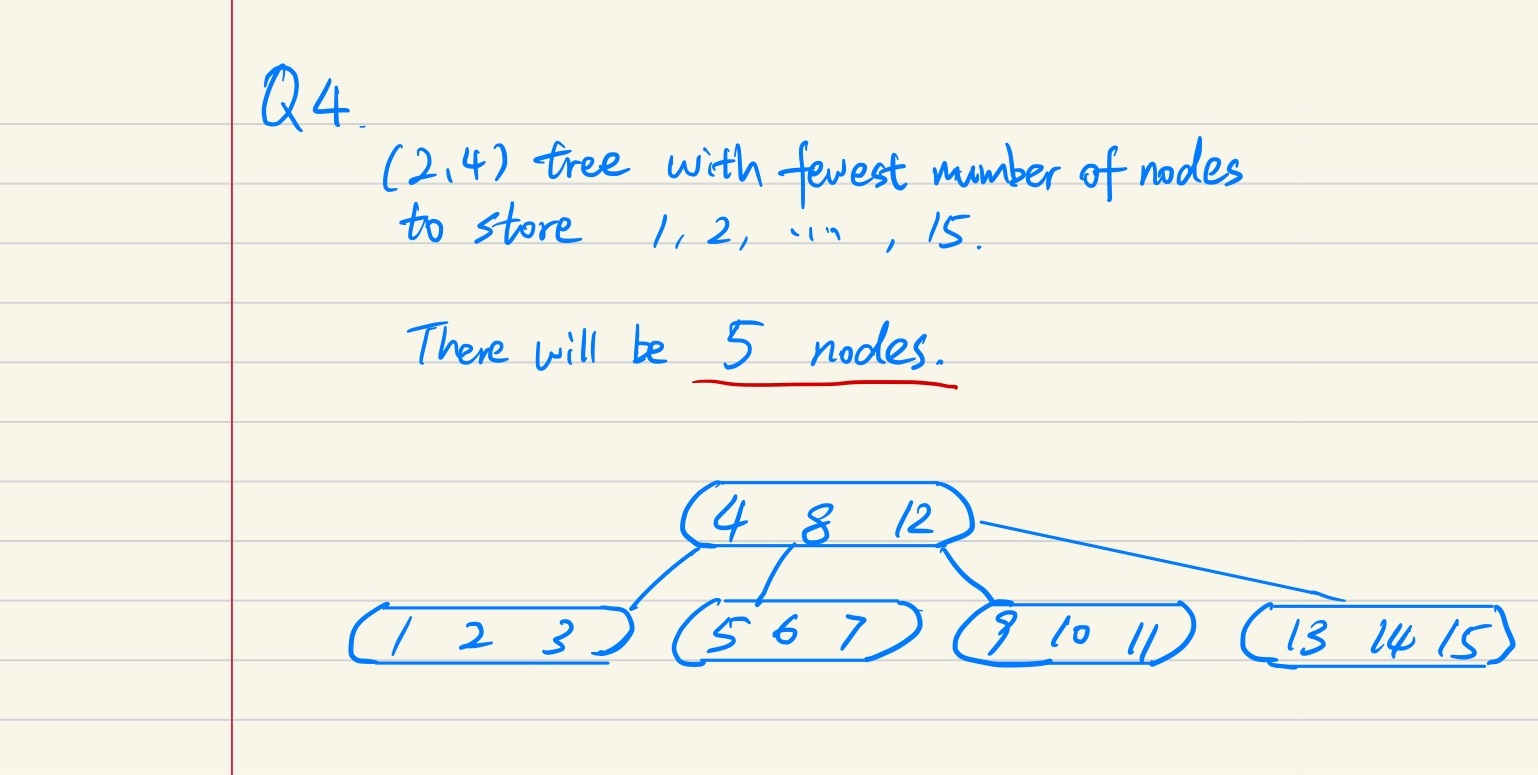 Q4.
(2,4) tree with fewest number of nodes
to store 1, 2, ...., 15.
There will be 5 nodes.
4 8 12
1 2 3 5 6 7 9 10 11 13 14 15